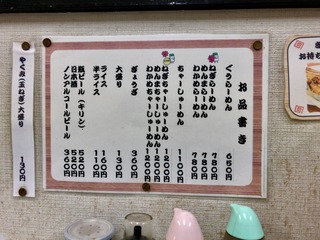 お品書き
ぐうらーめん 650円
ねぎらーめん 780円
めんまらーめん 780円
わかめらーめん 780円
ちゃーしゅーめん 1100円
ねぎちゃーしゅーめん 1200円
めんまちゃーしゅーめん 1200円
わかめちゃーしゅーめん 1200円
ぎょうざ 360円
大盛り 130円
ライス 160円
半ライス 110円
瓶ビール(キリン) 520円
日本酒 520円
ノンアルコールビール 360円
やくみ(玉ねぎ)大盛り 130円
お持ち